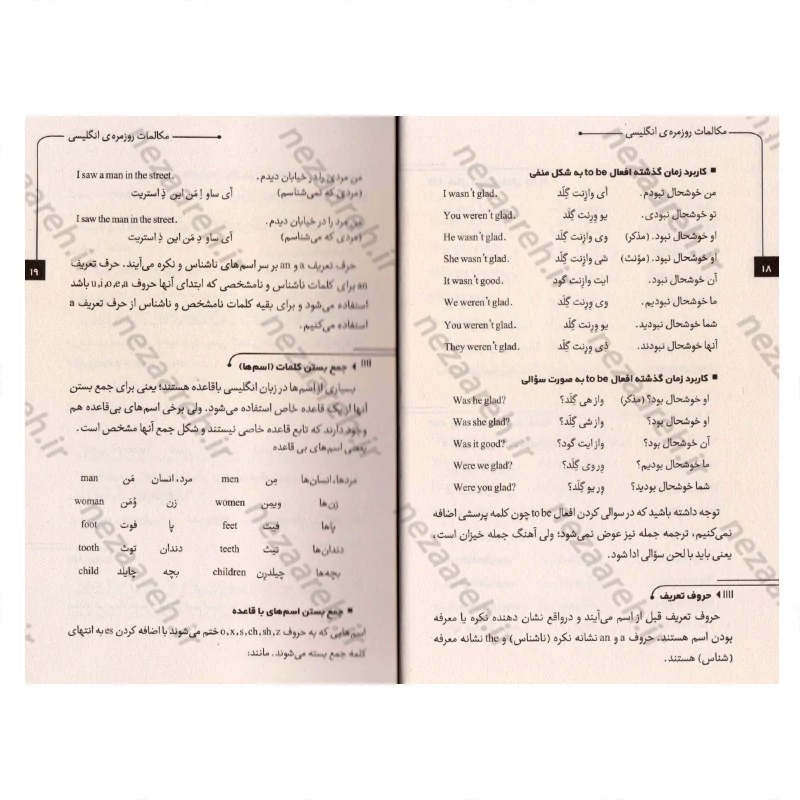 مکالمات روزمره‌ی انگلیسی
۱۸
■ کاربرد زمان گذشته افعال to be به شکل منفی
من خوشحال نبودم. آی وازِنت گِلَد I wasn't glad.
تو خوشحال نبودی. یو وِرِنت گِلَد You weren't glad.
او خوشحال نبود. (مذکر) وی وازِنت گِلَد He wasn't glad.
او خوشحال نبود. (مؤنث) شی وازِنت گِلَد She wasn't glad.
آن خوشحال نبود. ایت وازِنت گود It wasn't good.
ما خوشحال نبودیم. وی وِرِنت گِلَد We weren't glad.
شما خوشحال نبودید. یو وِرِنت گِلَد You weren't glad.
آنها خوشحال نبودند. دَی وِرِنت گِلَد They weren't glad.
■ کاربرد زمان گذشته افعال to be به صورت سؤالی
او خوشحال بود؟ (مذکر) واز هی گِلَد؟ Was he glad?
او خوشحال بود؟ واز شی گِلَد؟ Was she glad?
آن خوشحال بود؟ واز ایت گود؟ Was it good?
ما خوشحال بودیم؟ وِر وی گِلَد؟ Were we glad?
شما خوشحال بودید؟ وِر یو گِلَد؟ Were you glad?
توجه داشته باشید که در سوالی کردن افعال to be چون کلمه پرسشی اضافه
نمی‌کنیم، ترجمه جمله نیز عوض نمی‌شود؛ ولی آهنگ جمله خیزان است،
یعنی باید با لحن سؤالی ادا شود.
حروف تعریف
حروف تعریف قبل از اسم می‌آیند و درواقع نشان دهنده نکره یا معرفه
بودن اسم هستند. حروف a و an نشانه نکره (ناشناس) و the نشانه معرفه
(شناس) هستند.
مکالمات روزمره‌ی انگلیسی
۱۹
من مردی را در خیابان دیدم. I saw a man in the street.
(مردی که نمی‌شناسم) آی ساو اِ مَن این ذِ استریت
من مرد را در خیابان دیدم. I saw the man in the street.
(مردی که می‌شناسم) آی ساو دِ مَن این ذِ استریت
حرف تعریف a و an بر سر اسم‌های ناشناس و نکره می‌آیند. حرف تعریف
an برای کلمات ناشناس و نامشخصی که ابتدای آنها حروف u,i,o,e,a باشد
استفاده می‌شود و برای بقیه کلمات نامشخص و ناشناس از حرف تعریف a
استفاده می‌کنیم.
جمع بستن کلمات (اسم‌ها)
بسیاری از اسم‌ها در زبان انگلیسی باقاعده هستند؛ یعنی برای جمع بستن
آنها از یک قاعده خاص استفاده می‌شود. ولی برخی اسم‌های بی‌قاعده هم
وجود دارند که تابع قاعده خاصی نیستند و شکل جمع آنها مشخص است.
یعنی اسم‌های بی قاعده
مردها، انسان‌ها مِن men مرد، انسان مَن man
زن‌ها ویمِن women زن وُمَن woman
پاها فیت feet پا فوت foot
دندان‌ها تیث teeth دندان توث tooth
بچه‌ها چیلدرِن children بچه چایلد child
■ جمع بستن اسم‌های با قاعده
اسم‌هایی که به حروف o,x,s,ch,sh,z ختم می‌شوند با اضافه کردن es به انتهای
کلمه جمع بسته می‌شوند. مانند:
nezaareh.ir